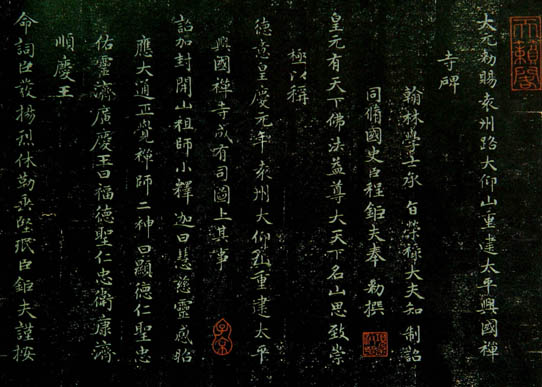 天籟閣
大元勑賜袁州路大仰山重建太平興國禪
寺碑
翰林學士承旨榮祿大夫知制誥
同脩國史臣程鉅夫奉勑撰
皇元有天下佛法益尊大天下名山思致崇
極以稱
德意皇慶元年袁州大仰重建太平
興國禪寺成有司圖上其事
詔加封開山祖師小釋迦曰慧慈靈感昭
應大通正覺禪師二神曰顯德仁聖忠
佑靈濟廣慶王曰福德聖仁忠衛康濟
順慶王
命詞臣發揚烈休勒堅珉臣鉅夫謹按
子京